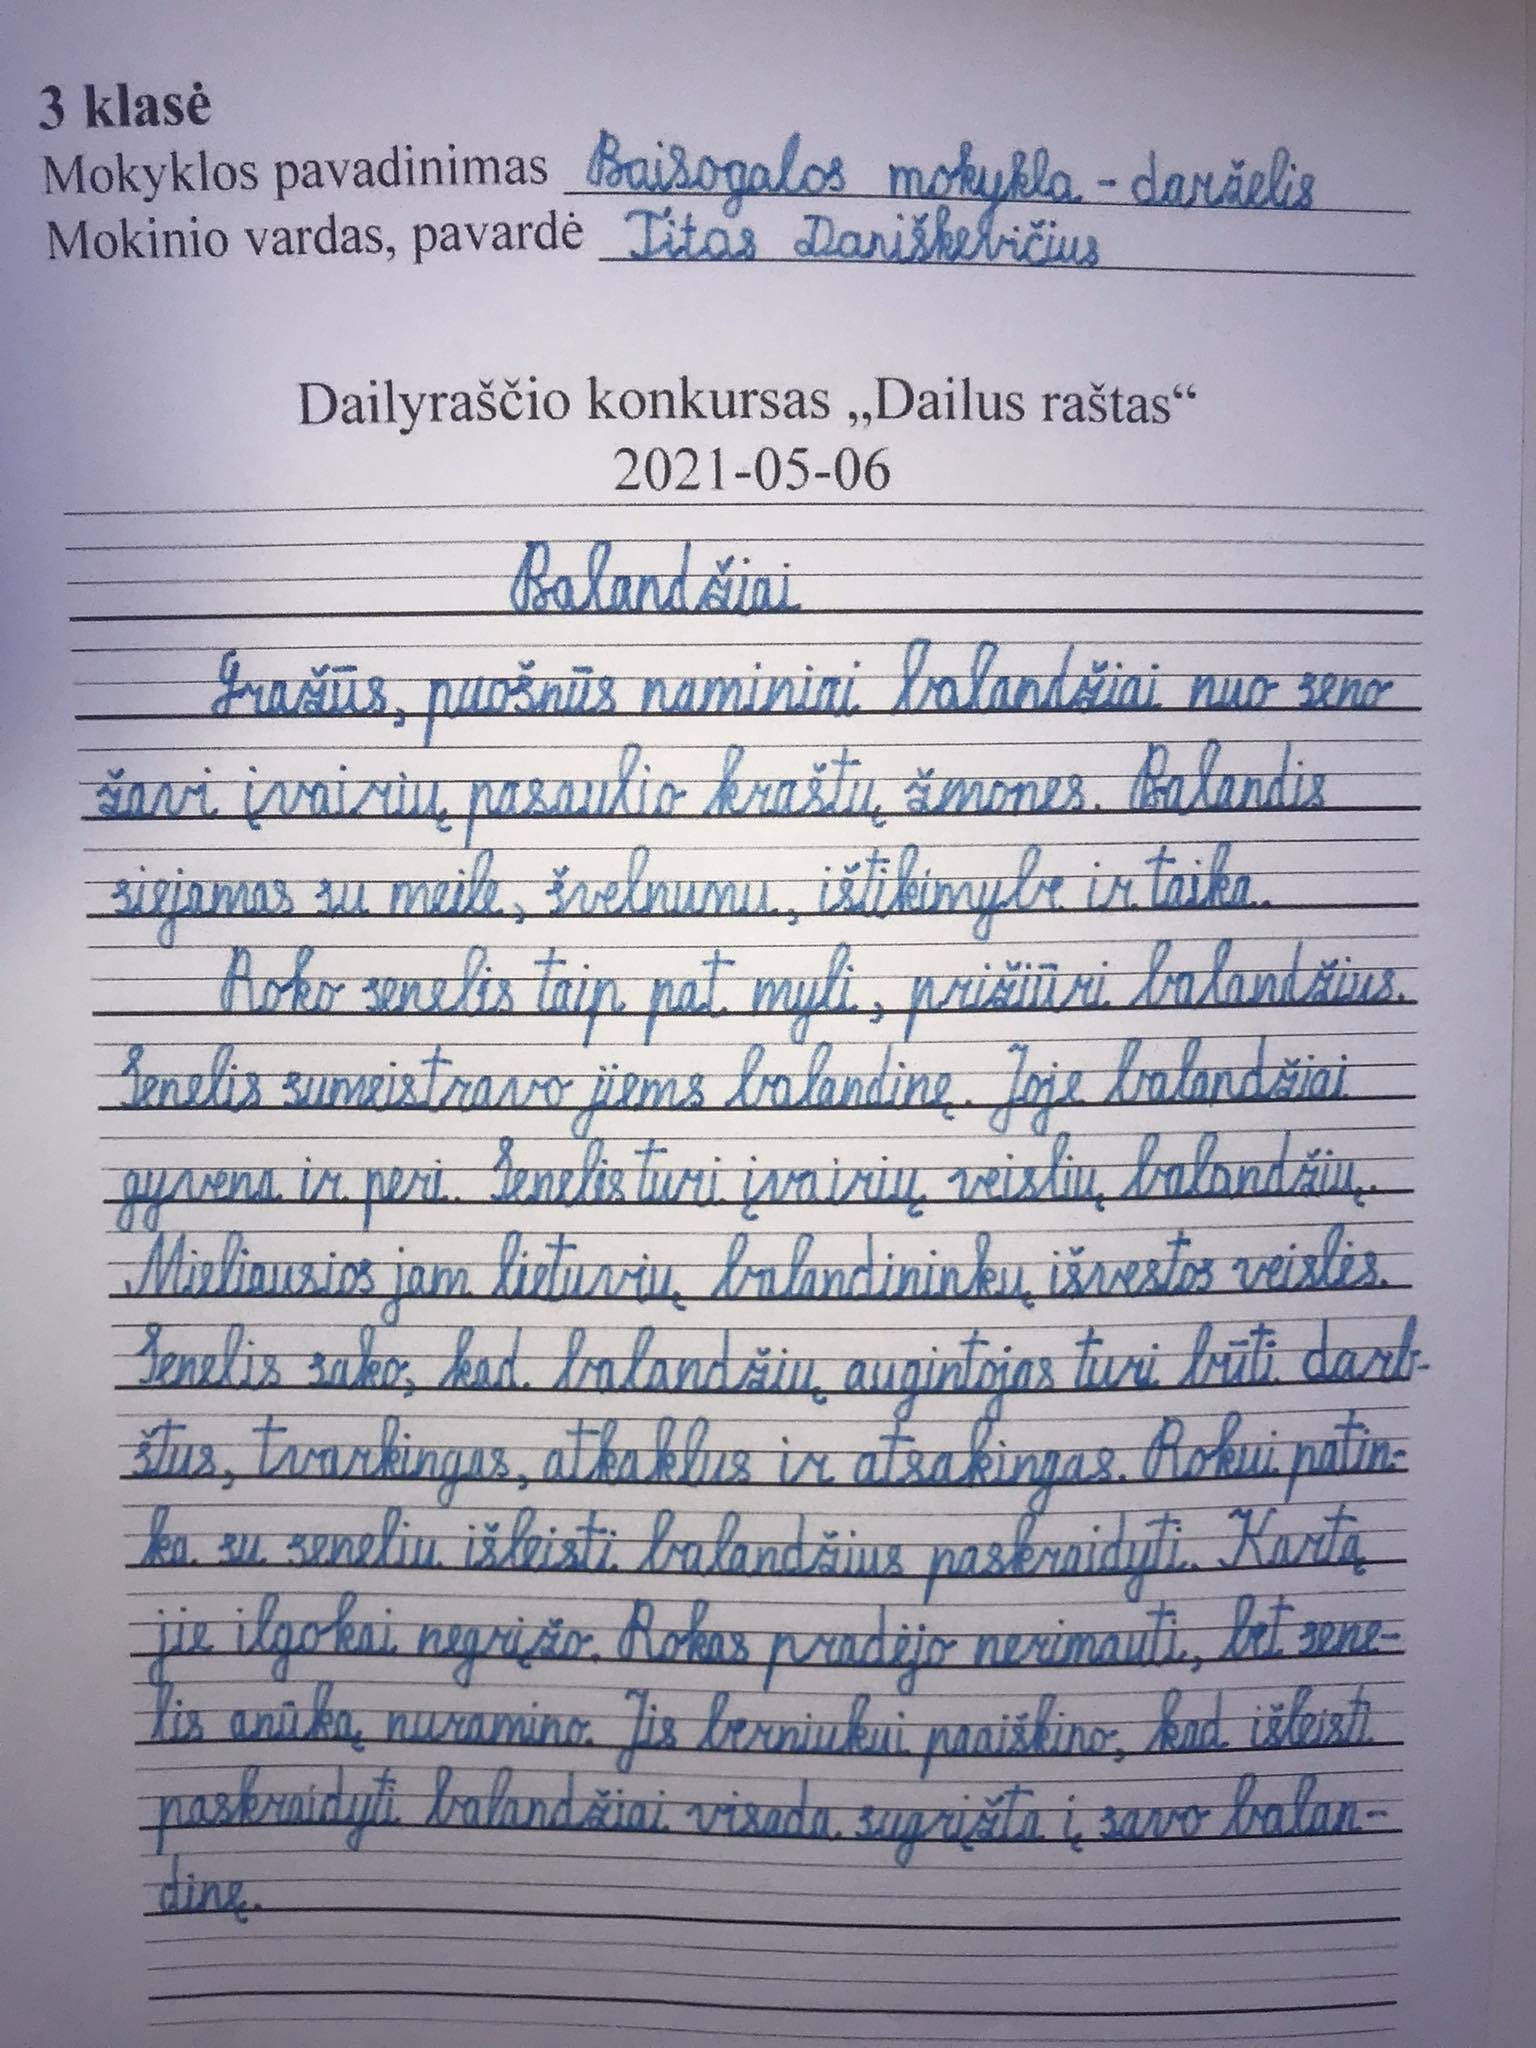 3 klasė
Mokyklos pavadinimas Baisogalos mokykla-darželis
Mokinio vardas, pavardė Titas Daniškevičius
Dailyraščio konkursas „Dailus raštas“
2021-05-06
Balandžiai
Gražūs, puošnūs naminiai balandžiai nuo seno
žavi įvairių pasaulio kraštų žmones. Balandis
siejamas su meile, švelnumu, ištikimybe ir taika.
Roko senelis taip pat myli, prižiūri balandžius.
Senelis sumeistravo jiems balandinę. Joje balandžiai
gyvena ir peri. Senelis turi įvairių veislių balandžių.
Mieliausios jam lietuvių balandininkų išvestos veislės.
Senelis sako, kad balandžių augintojas turi būti darb-
štus, tvarkingas, atkaklus ir atsakingas. Rokui patin-
ka su seneliu išleisti balandžius paskraidyti. Kartą
jie ilgokai negrįžo. Rokas pradėjo nerimauti, bet sene-
lis anūką nuramino. Jis berniukui paaiškino, kad išleisti
paskraidyti balandžiai visada sugrįžta į savo balan-
dinę.